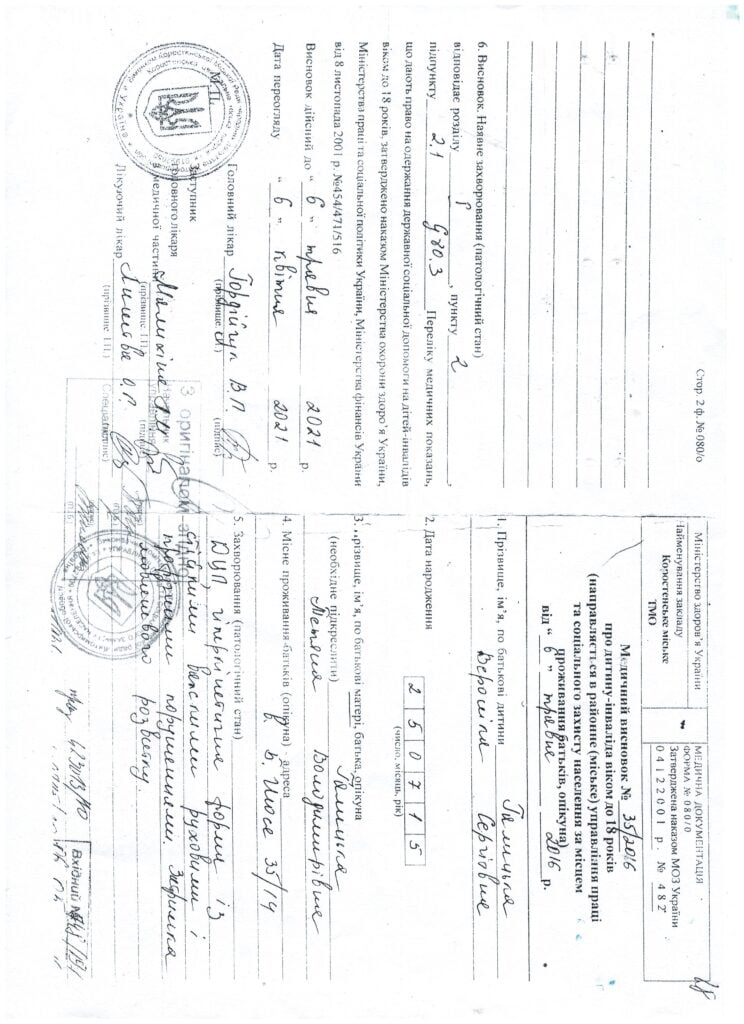 28
Міністерство здоров'я України
Найменування закладу
Коростенське міське
ТМО
МЕДИЧНА ДОКУМЕНТАЦІЯ
ФОРМА № 080/0
Затверджена наказом МОЗ України
04122001 р. № 482
Медичний висновок № 35/2016
про дитину-інваліда віком до 18 років
(направляється в районне (міське) управління праці
та соціального захисту населення за місцем
проживання батьків, опікуна)
від " 6 " травня 2016 р.
1. Прізвище, ім'я, по батькові дитини Галицька
Вероніка Сергіївна
2. Дата народження 2 5 0 7 1 5
(число, місяць, рік)
3. ...різвище, ім'я, по батькові матері, батька, опікуна
(необхідне підкреслити) Галицька
Тетяна Володимирівна
4. Місне проживання-батьків (опікуна) - адреса
35/14
5. Захворювання (патологічний стан)
ДЦП, гіперкінетична форма із
стійкими важкими руховими і
порушеннями. Затримка
мовленевого розвитку
Вхідний №
Стор. 2 ф. № 080/о
6. Висновок. Наявне захворювання (патологічний стан)
відповідає розділу I, пункту 2
підпункту 2.1 G80.3 Переліку медичних показань,
що дають право на одержання державної соціальної допомоги на дітей-інвалідів
віком до 18 років, затверджено наказом Міністерства охорони здоров'я України,
Міністерства праці та соціальної політики України, Міністерства фінансів України
від 8 листопада 2001 р. №454/471/516
Висновок дійсний до " 6 " травня 2021 р.
Дата переогляду " 6 " квітня 2021 р.
М.П.
Головний лікар В.П.
(прізвище, І.П.) (підпис)
Заступник
головного лікаря
з медичної частини
(прізвище, І.П.) (підпис)
Лікуючий лікар О.Р.
(прізвище, І.П.) (підпис)
З оригіналом
Спеціаліст